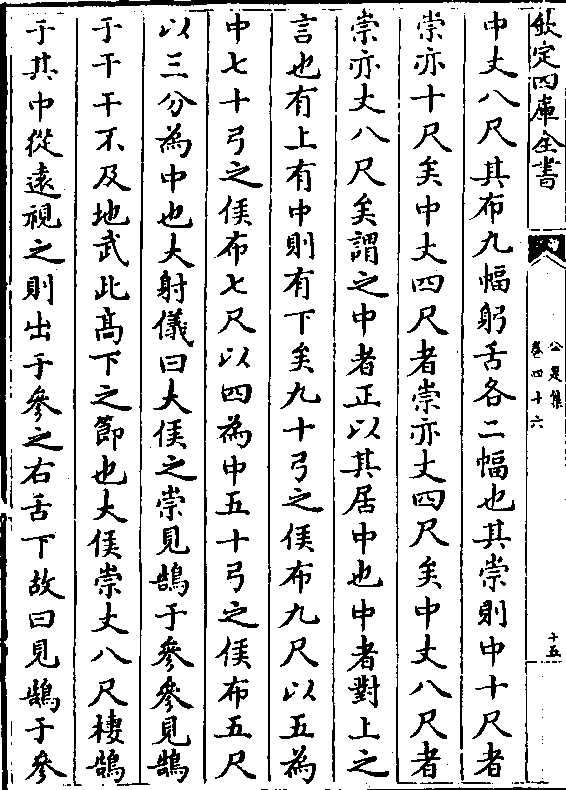 欽定四庫全書
公是集
卷四十六
十五
中丈八尺其布九幅躬舌各二幅也其崇則中十尺者
崇亦十尺矣中丈四尺者崇亦丈四尺矣中丈八尺者
崇亦丈八尺矣謂之中者正以其居中也中者對上之
言也有上有中則有下矣九十弓之侯布九尺以五為
中七十弓之侯布七尺以四為中五十弓之侯布五尺
以三分為中也大射儀曰大侯之崇見鵠于參參見鵠
于干干不及地武此髙下之節也大侯崇丈八尺棲鵠
于其中從逺視之則出于參之右舌下故曰見鵠于參